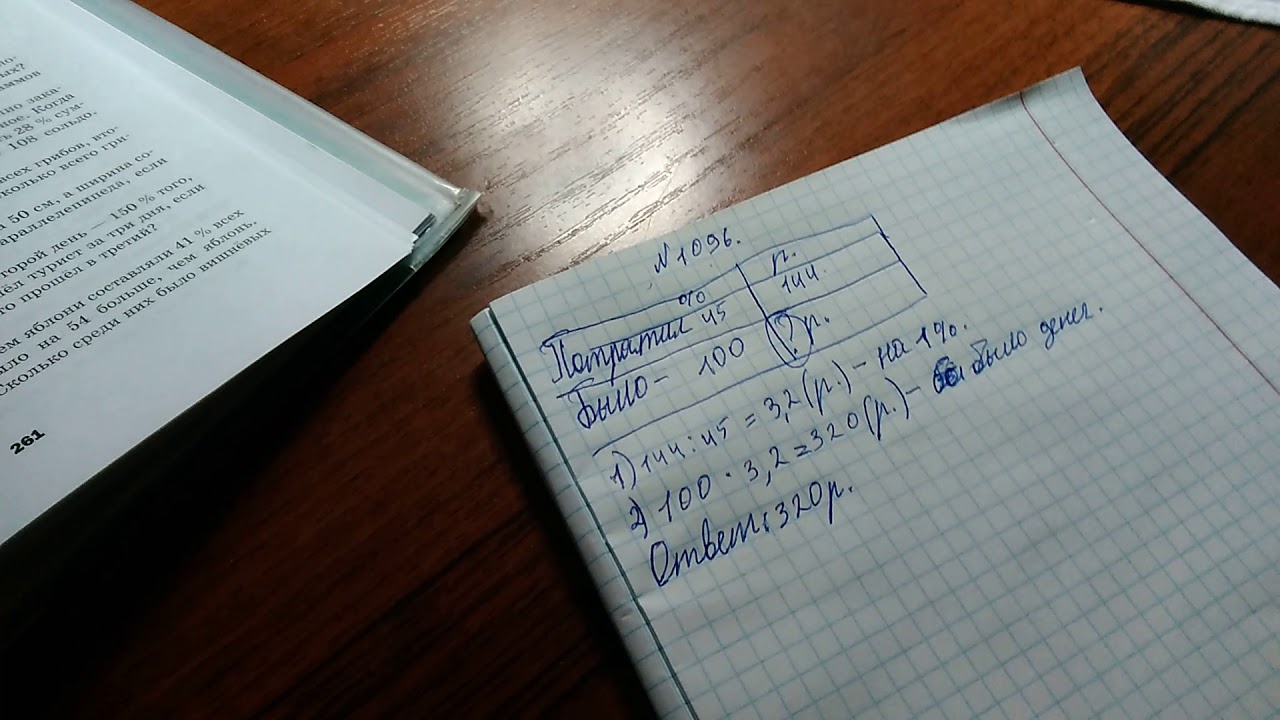 ых?
аммов
но зака-
ное. Когда
ь 28 % сум-
108 сольдо.
всех грибов, вто-
колько всего гри-
50 см, а ширина со-
араллелепипеда, если
торой день — 150 % того,
шёл турист за три дня, если
то прошёл в третий?
ем яблони составляли 41 % всех
ыло на 54 больше, чем яблонь.
Сколько среди них было вишнёвых
261
№ 1096.
% р.
Потратил 45 144
Было – 100 ? р.
1) 144 : 45 = 3,2 (р.) – на 1%.
2) 100 · 3,2 = 320 (р.) – было денег.
Ответ: 320 р.